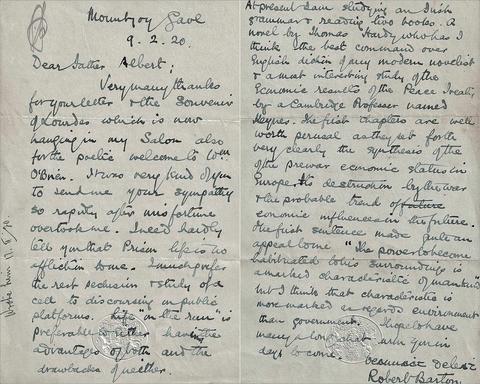 Mountjoy Gaol
9. 2. 20.
Dear Father Albert;
Very many thanks
for your letter & the Souvenir
of Lourdes which is now
hanging in my Salon also
for the poetic welcome to Wm
O'Brien. It was very kind of you
to send me your sympathy
so rapidly after misfortune
overtook me. I need hardly
tell you that Prison life is no
affliction to me. I much prefer
the rest seclusion & study of a
cell to discoursing on public
platforms. Life "on the run" is
preferable to either having the
advantages of both and the
drawbacks of neither.
At present I am studying an Irish
grammar & reading two books. A
novel by Thomas Hardy who has I
think the best command over
English diction of any modern novelist
& a most interesting study of the
Economic results of the Peace Treaty
by a Cambridge Professor named
Keynes. The first chapters are well
worth perusal as they set forth
very clearly the synthesis of the
of the prewar economic status in
Europe, its destruction by the war
& the probable trend of future
economic influences in the future.
The first sentence made quite an
appeal to me "The power to become
habituated to his surroundings is
a marked characteristic of mankind"
but I think that characteristic is
more marked as regards environment
than government. I hope to have
many a long chat with you in
days to come.
Robert Barton.